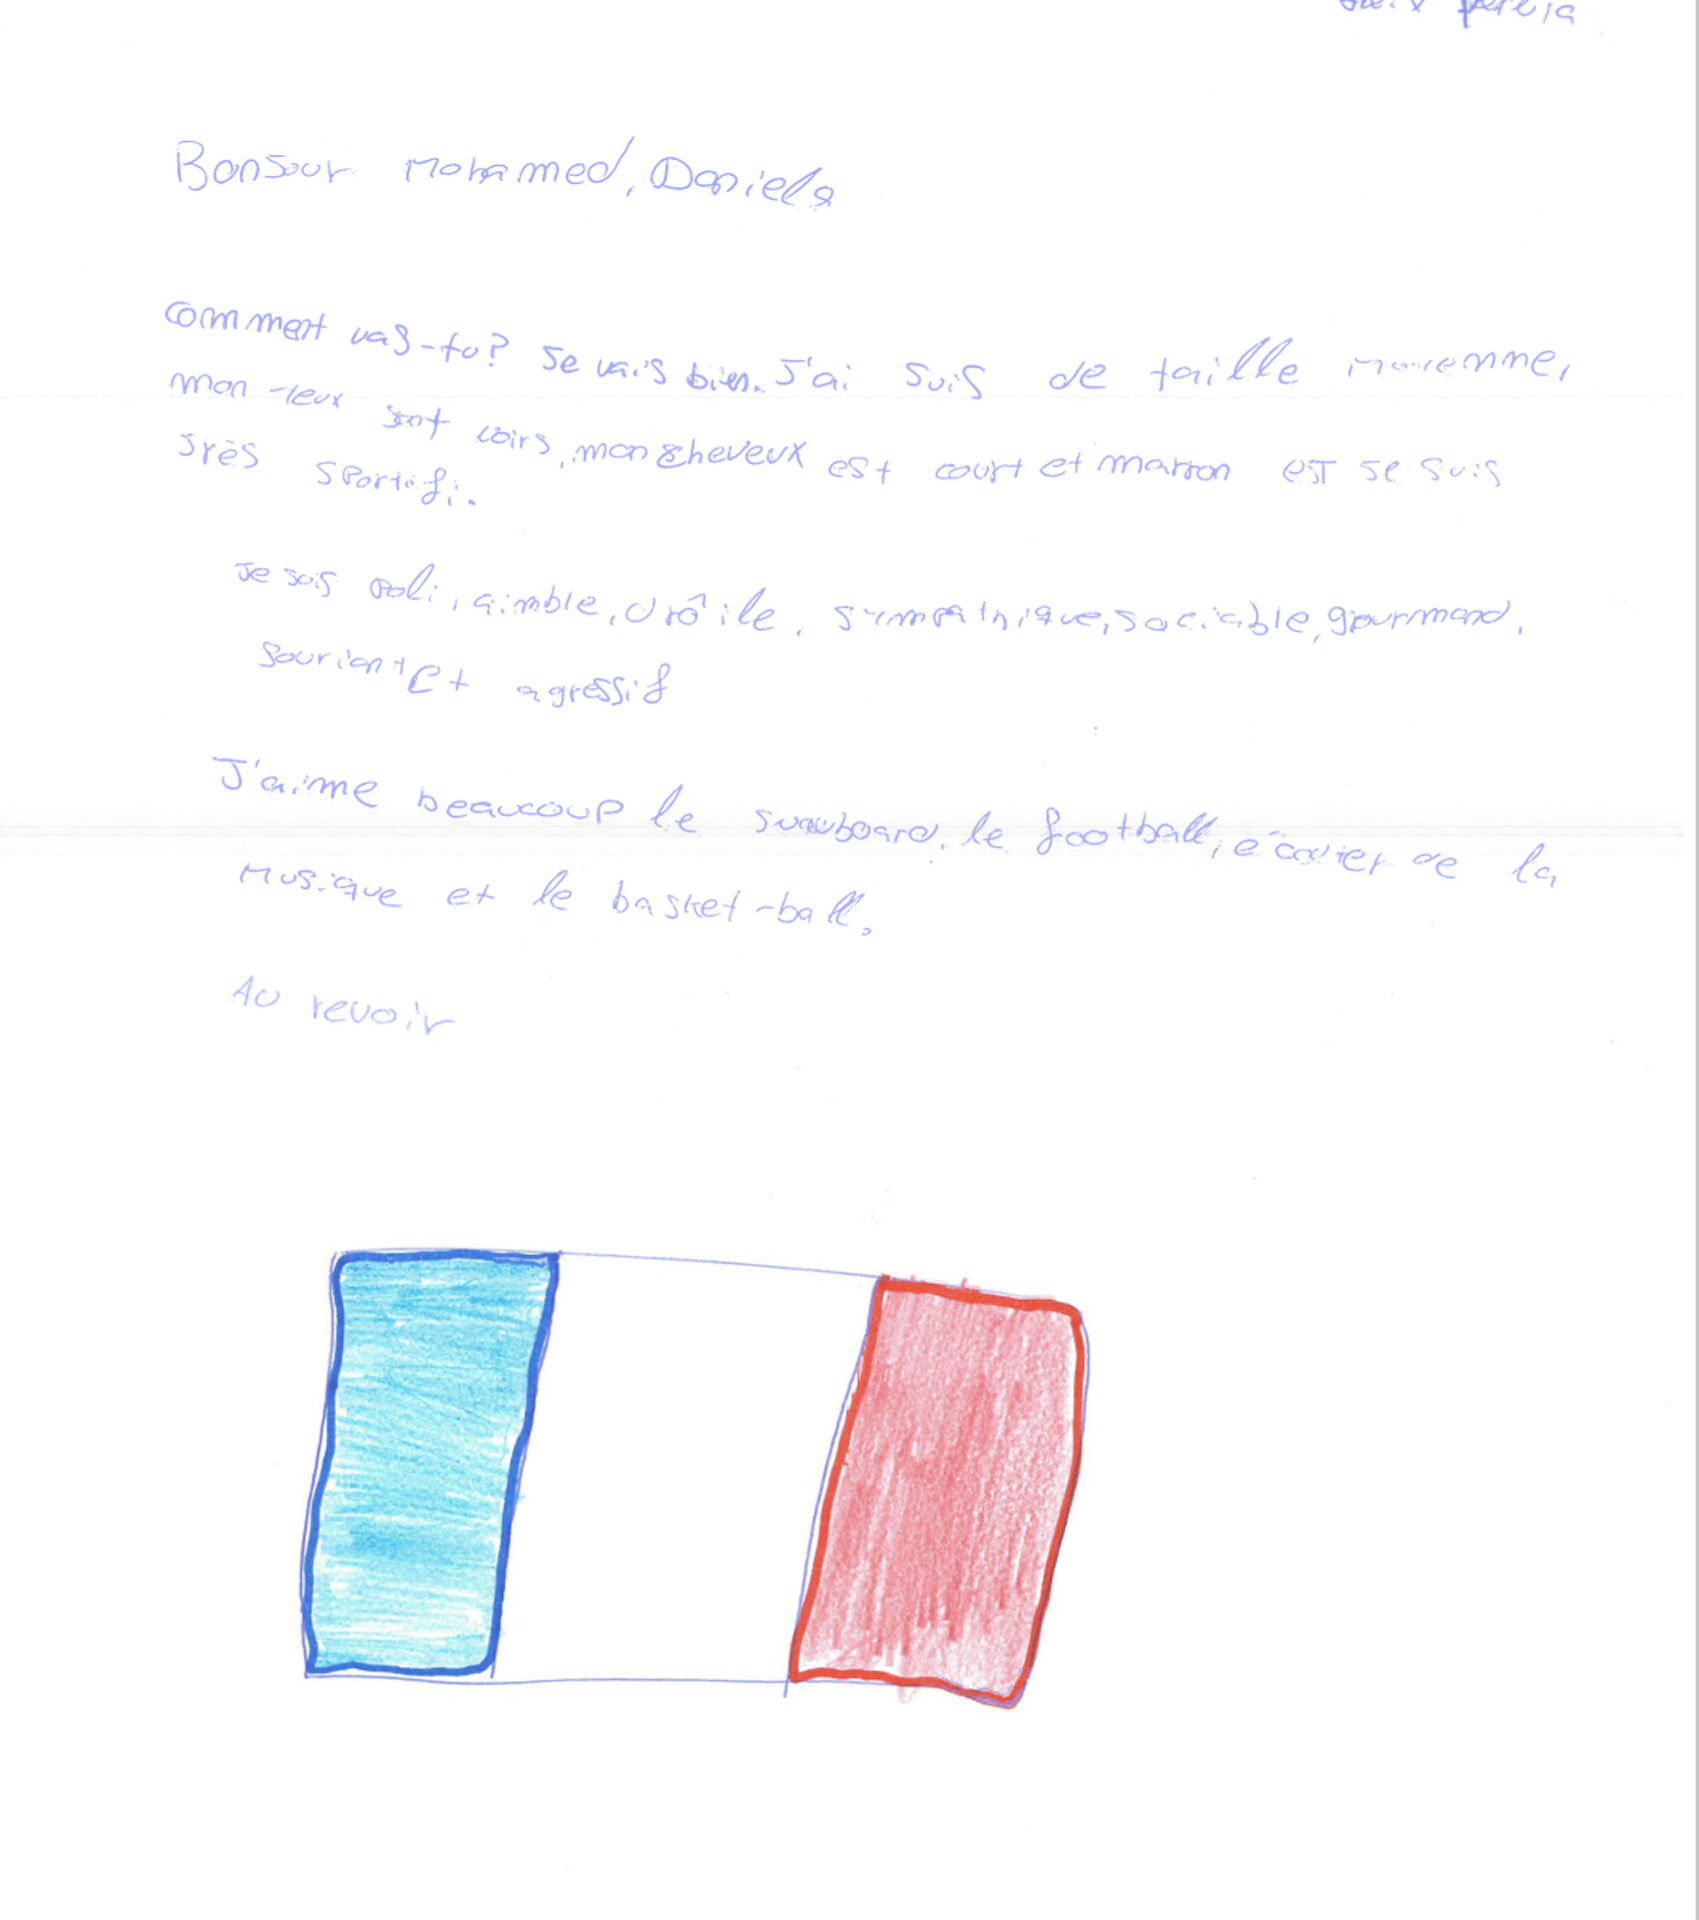 Bonsour Mohamed, Daniela
comment vas-tu? Je vais bien. J'ai suis de taille moyenne,
mon yeux sont noirs, mon cheveux est court et marron est se suis
très sportifi.
Je suis poli, aimble, drôile, sympathique, sociable, gourmand,
souriant et agressif
J'aime beaucoup le snowboard, le football, écouter de la
musique et le basket-ball.
Au revoir